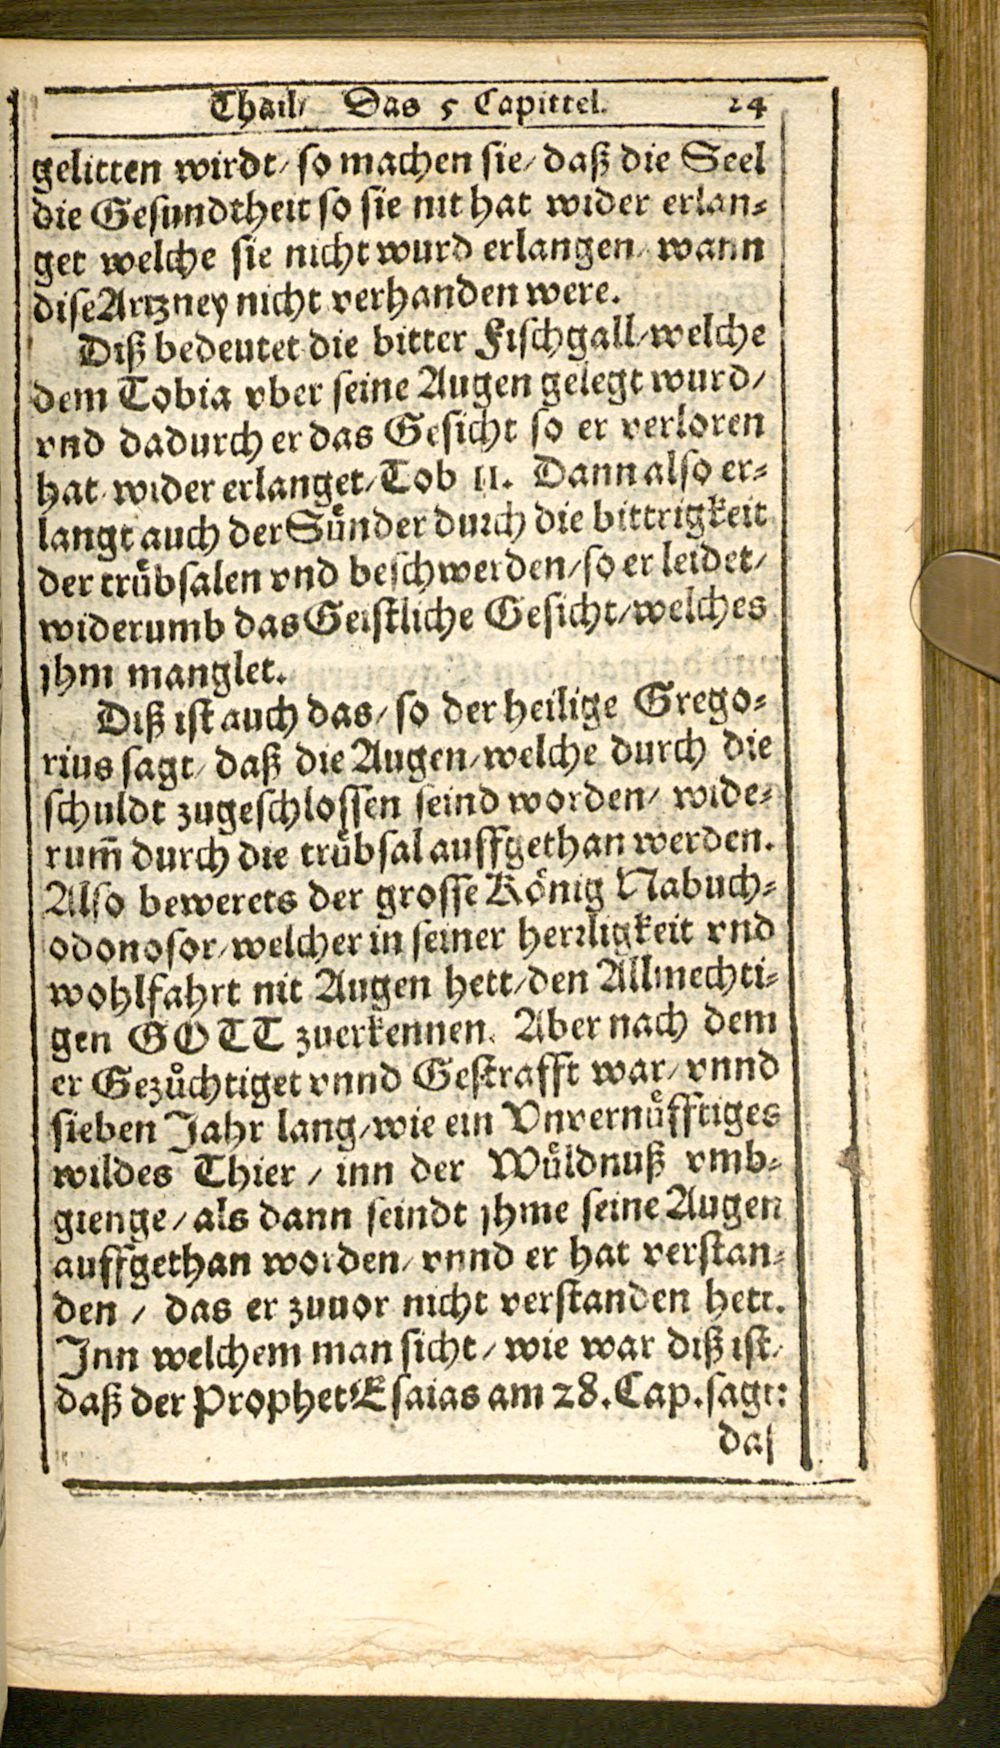 Thail/ Das 5 Capittel. 24
gelitten wirdt/ so machen sie/ daß die Seel
die Gesundtheit so sie nit hat wider erlan⸗
get welche sie nicht wurd erlangen/ wann
dise Artzney nicht verhanden were.
Diß bedeutet die bitter Fischgall/ welche
dem Tobia vber seine Augen gelegt wurd/
vnd dadurch er das Gesicht so er verloren
hat wider erlanget/ Tob 11. Dann also er⸗
langt auch der Sünder durch die bittrigkeit
der trübsalen vnd beschwerden/ so er leidet/
widerumb das Geistliche Gesicht/ welches
jhm manglet.
Diß ist auch das/ so der heilige Grego⸗
rius sagt/ daß die Augen/ welche durch die
schuldt zugeschlossen seind worden/ wide⸗
rum̃ durch die trübsal auffgethan werden.
Also bewerets der grosse König Nabuch⸗
odonosor/ welcher in seiner herrligkeit vnd
wohlfahrt nit Augen hett/ den Allmechti⸗
gen GOTT zuerkennen. Aber nach dem
er Gezüchtiget vnnd Gestrafft war/ vnnd
sieben Jahr lang/ wie ein Vnvernüfftiges
wildes Thier / inn der Wüldnuß vmb⸗
gienge/ als dann seindt jhme seine Augen
auffgethan worden/ vnnd er hat verstan⸗
den / das er zuuor nicht verstanden hett.
Inn welchem man sicht/ wie war diß ist/
daß der Prophet Esaias am 28. Cap. sagt:
das